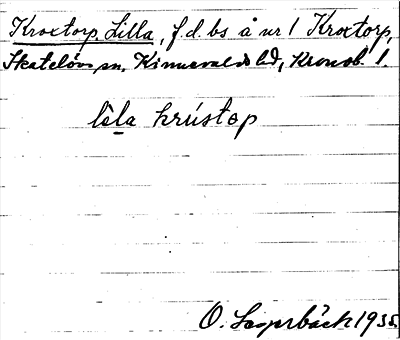 Kroxtorp, Lilla, f.d. bs å nr 1 Kroxtorp,
Skatelövs sn, Kinnevalds hd, Kronob. l.
lila krústəp
O. 1935